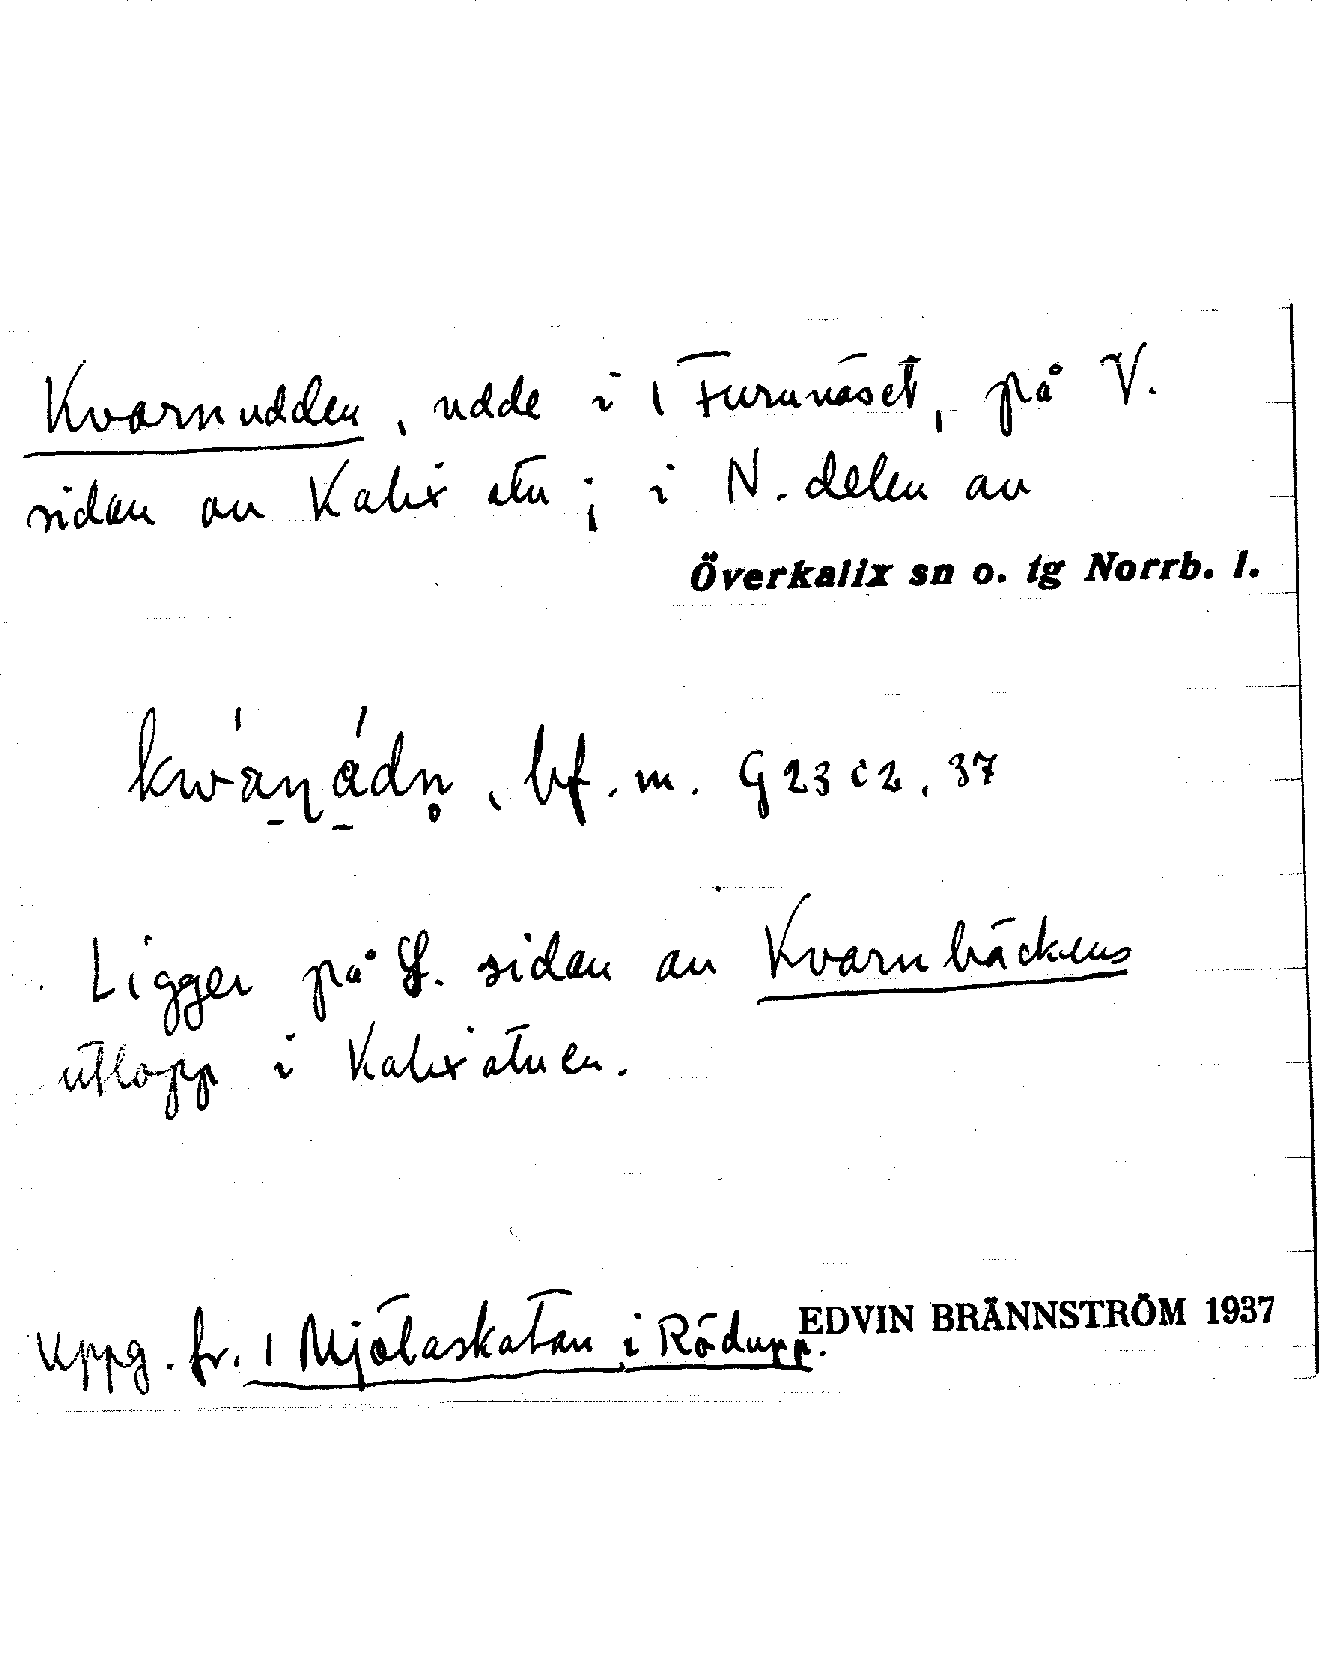 Kvarnudden, udde i 1 Furunäset, på V.
sidan av Kalix älv; i N. delen av
Överkalix sn o. tg Norrb. l.
bf. m. G 23 c 2, 37
Ligger på S. sidan av Kvarnbäckens
utlopp i Kalixälven.
EDVIN BRÄNNSTRÖM 1937
Uppg. fr. 1 Mjölaskatan i Rödupp.